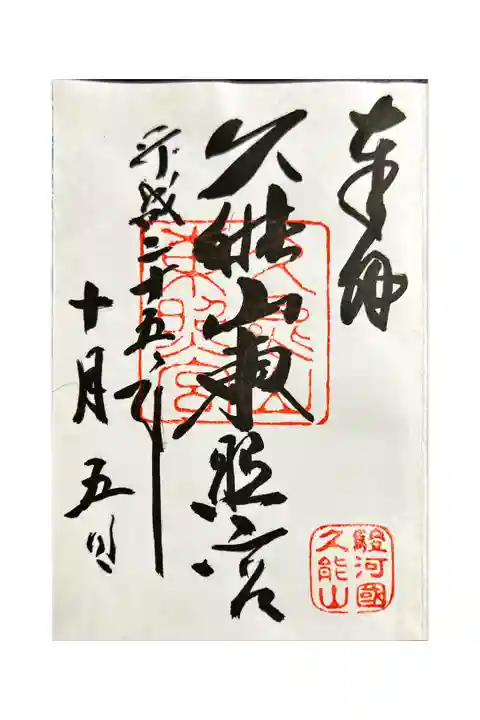 奉拝
久能山東照宮
平成二十五年
十月五日
久能山
東照宮
駿河國
久能山